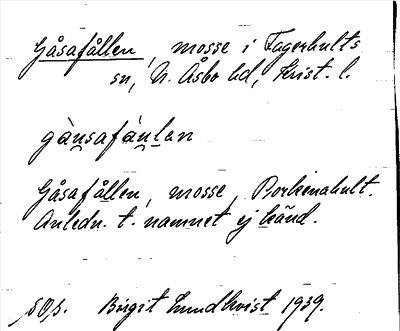 Gåsafållen, mosse i Fagerhults
sn, N. Åsbo hd, Krist. l.
gànsafànlan
Gåsafållen, mosse, Borkenahult.
Anledn. t. namnet ej känd.
Birgit Lundkvist 1939.